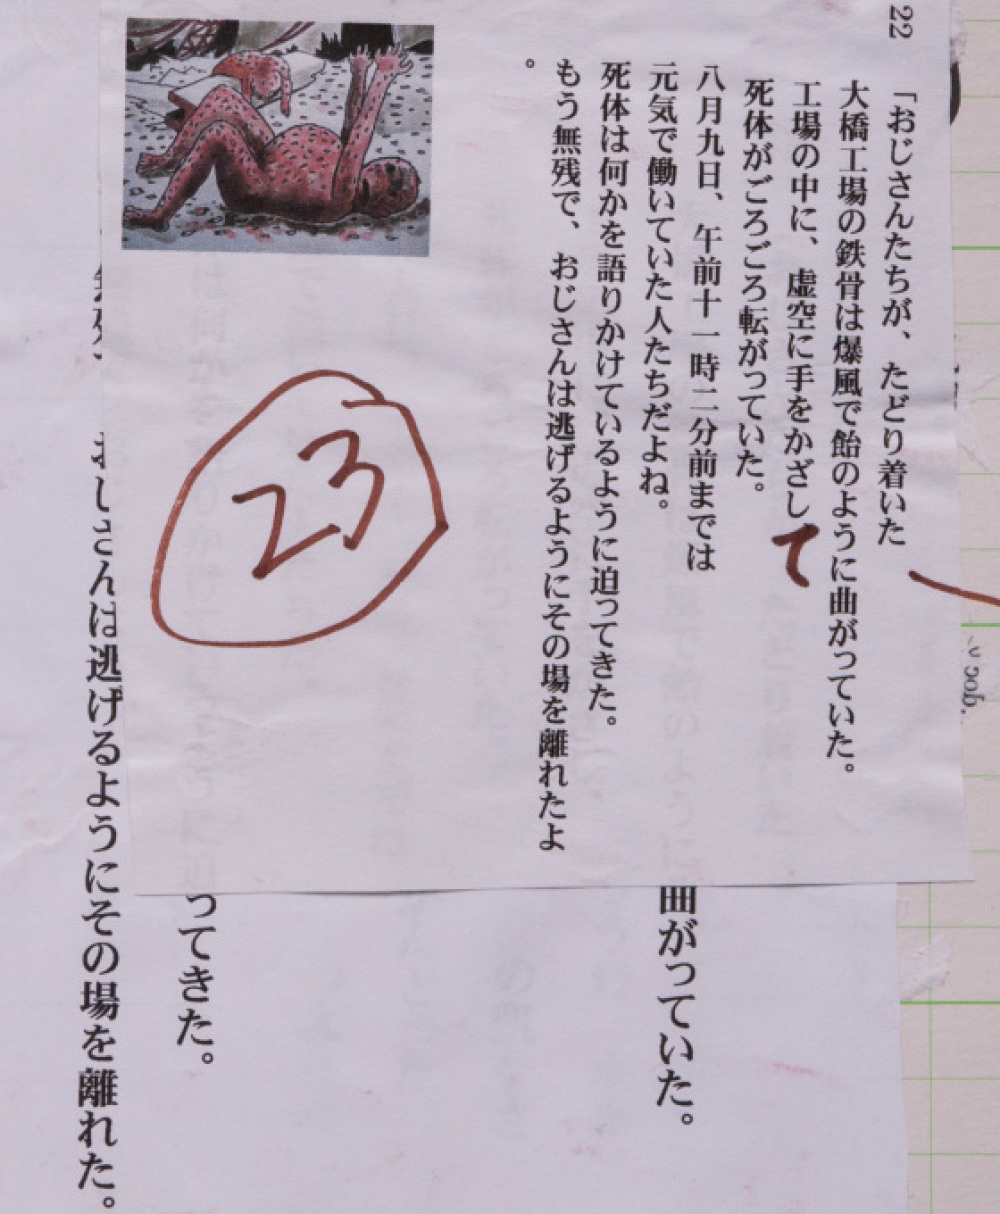 22
「おじさんたちが、たどり着いた
大橋工場の鉄骨は爆風で飴のように曲がっていた。
工場の中に、虚空に手をかざして
死体がごろごろ転がっていた。
八月九日、午前十一時二分前までは
元気で働いていた人たちだよね。
死体は何かを語りかけているように迫ってきた。
もう無残で、おじさんは逃げるようにその場を離れたよ
。
23
曲がっていた。
ってきた。
おじさんは逃げるようにその場を離れた。